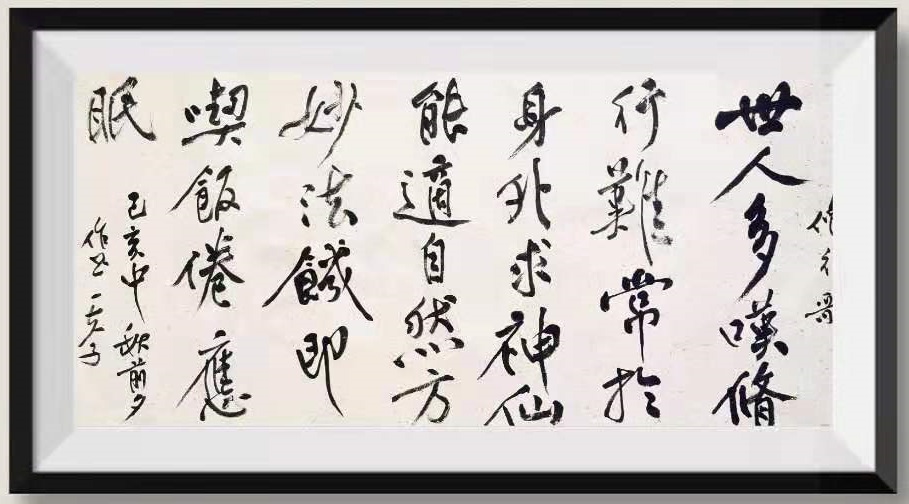 世人多嘆脩
行難常於
身外求神仙
能適自然方
妙法餓即
喫飯倦應
眠
己亥中秋前夕
作书